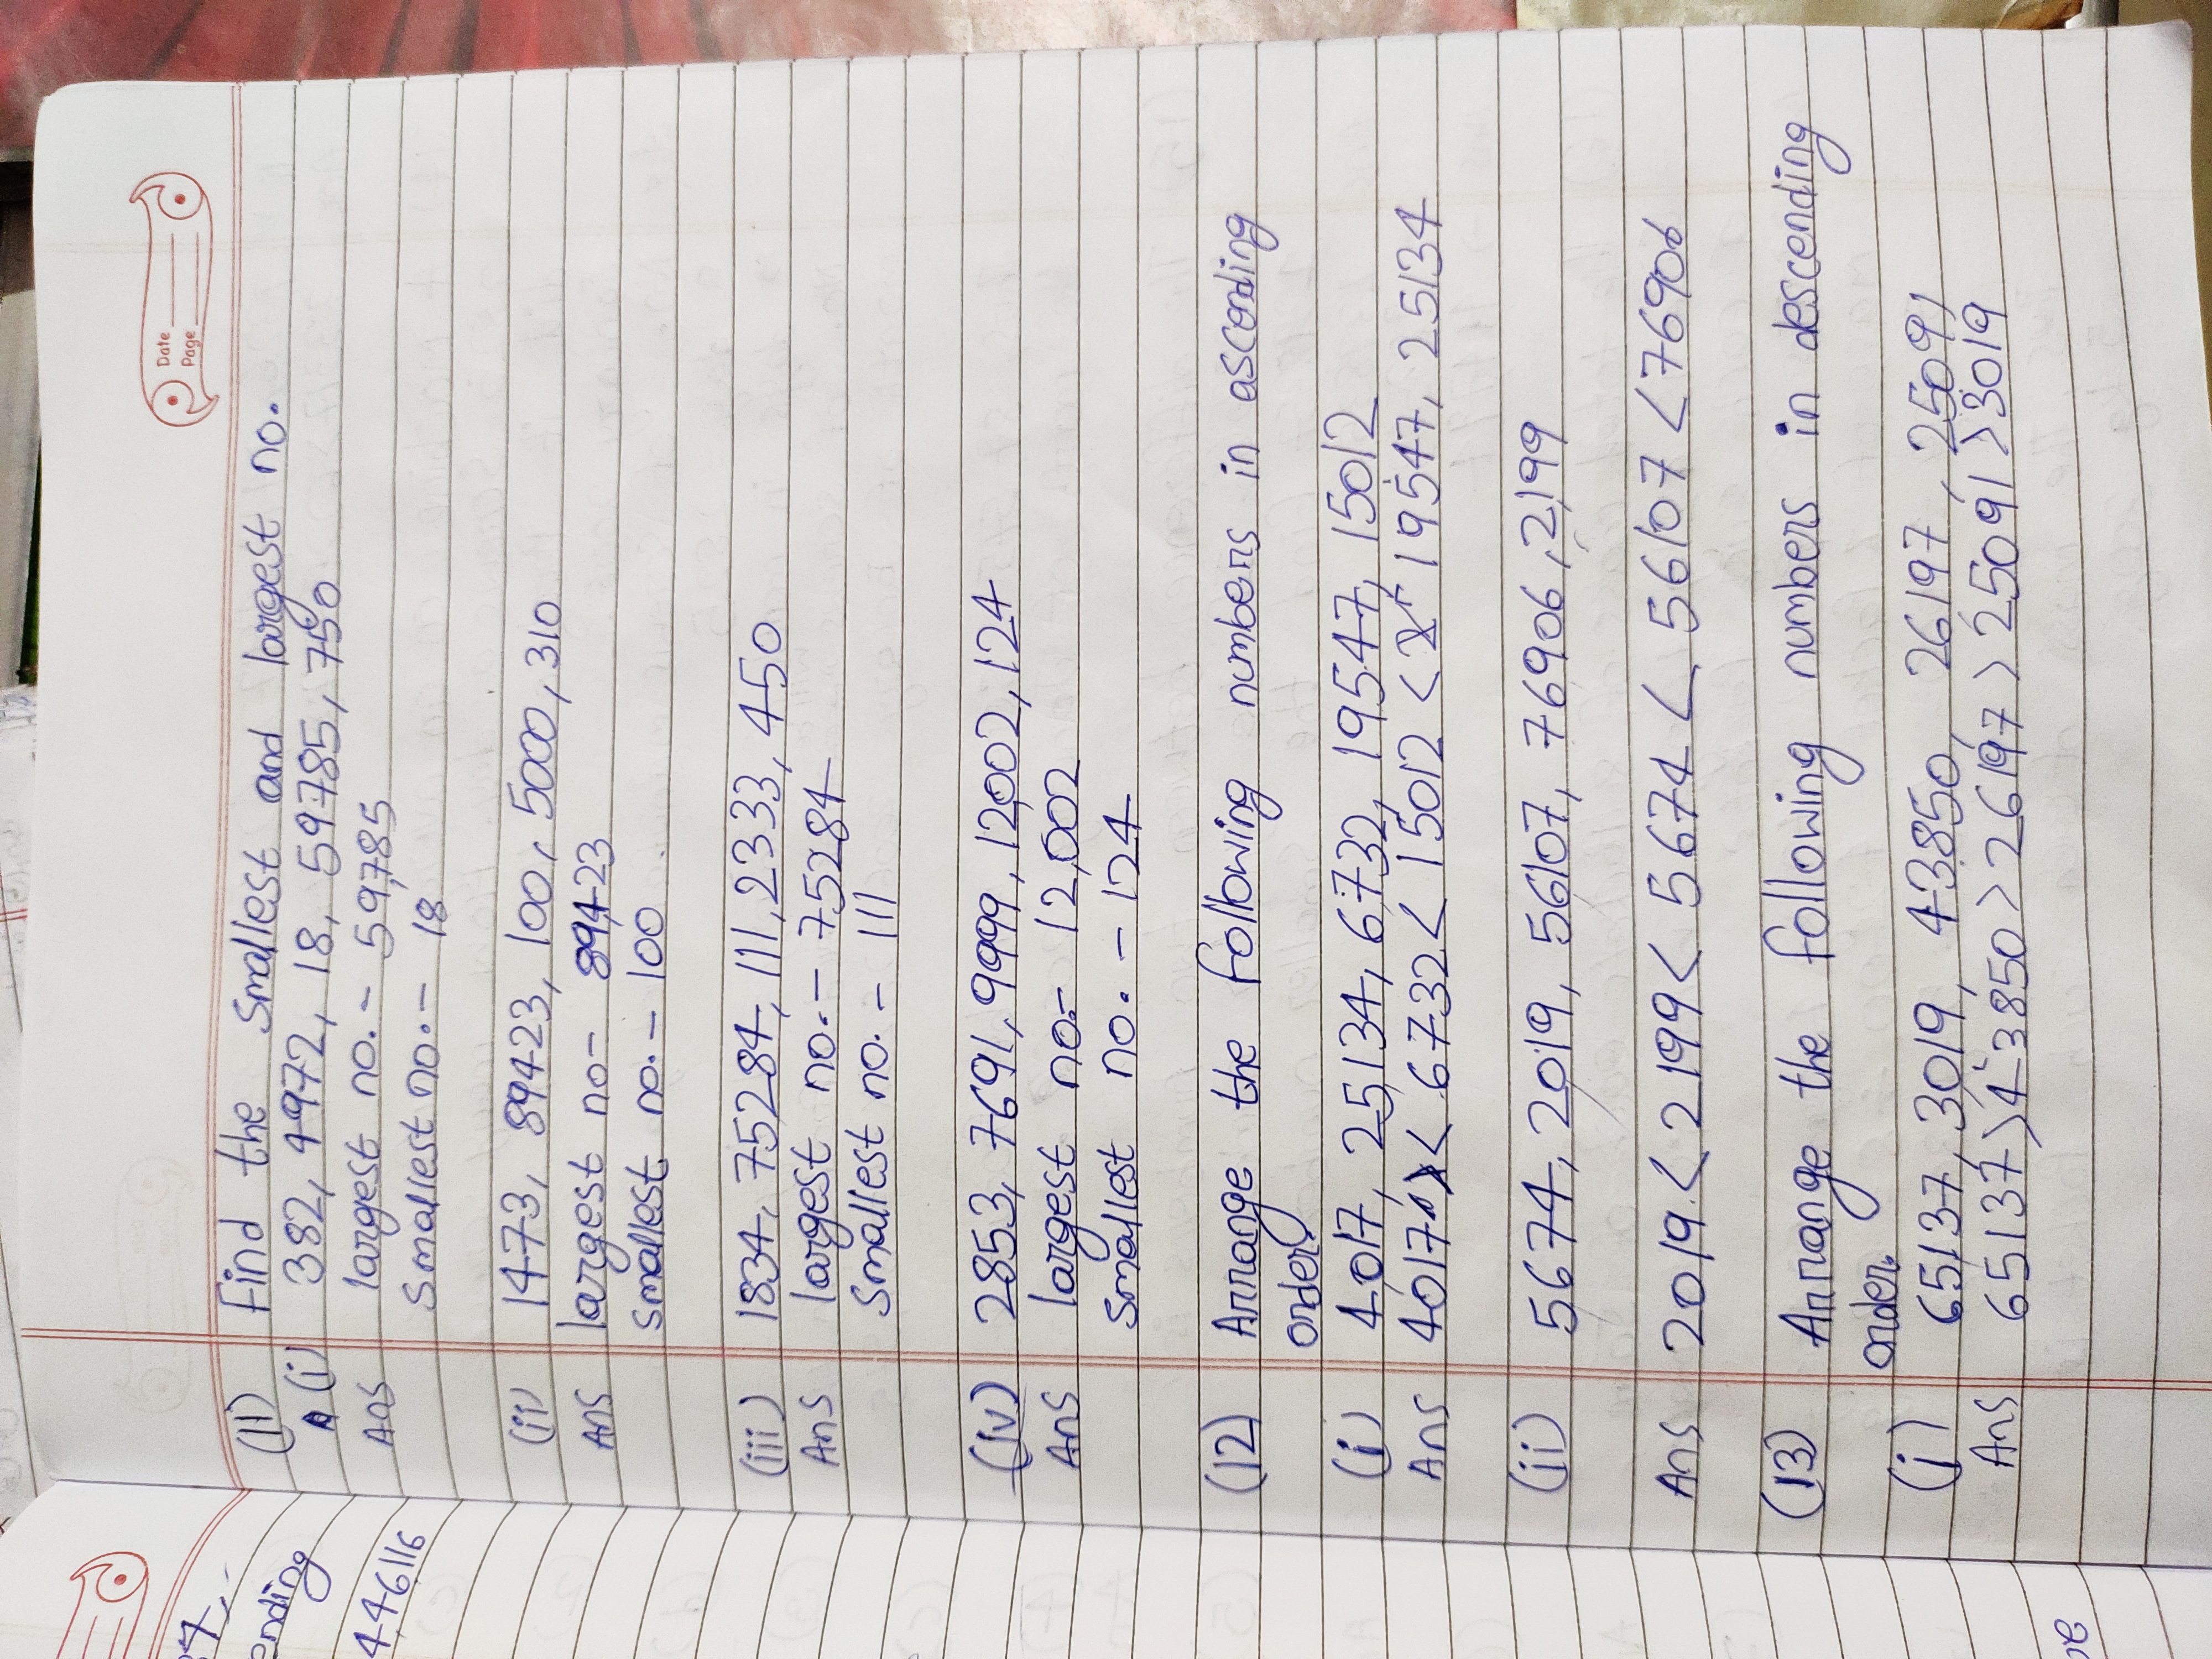 Date
Page
(11) Find the smallest and largest no.
(i) 382, 4972, 18, 59785, 750
Ans largest no. - 59,785
smallest no. - 18
(ii) 1473, 89423, 100, 5000, 310
Ans largest no - 89,423
smallest no. - 100
(iii) 1834, 75284, 111, 2333, 450
Ans largest no. - 75284
smallest no. - 111
(iv) 2853, 7691, 9999, 12002, 124
Ans largest no. - 12,002
smallest no. - 124
(12) Arrange the following numbers in ascending
order.
(i) 4017, 25134, 6732, 19547, 15012
Ans 4017 < 6732 < 15012 < 19547, 25134
(ii) 5674, 2019, 56107, 76906, 2199
Ans 2019 < 2199 < 5674 < 56107 < 76906
(13) Arrange the following numbers in descending
order.
(i) 65137, 3019, 43850, 26197, 25091
Ans 65137 > 43850 > 26197 > 25091 > 3019
ending
446116